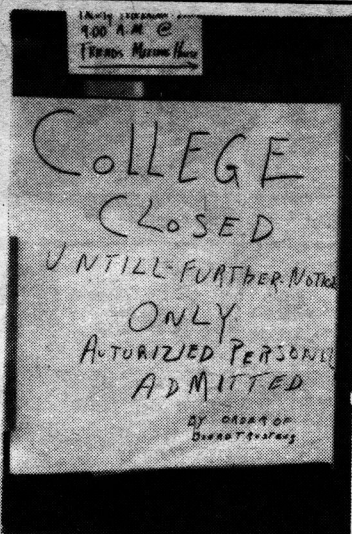 9:00 A.M @
FRIENDS MEETING HOUSE
COLLEGE
CLOSED
UNTILL-FURTHER-NOTICE
ONLY
AUTURIZIED PERSONEL
ADMITTED
BY ORDER OF
BOARD TRUSTEES